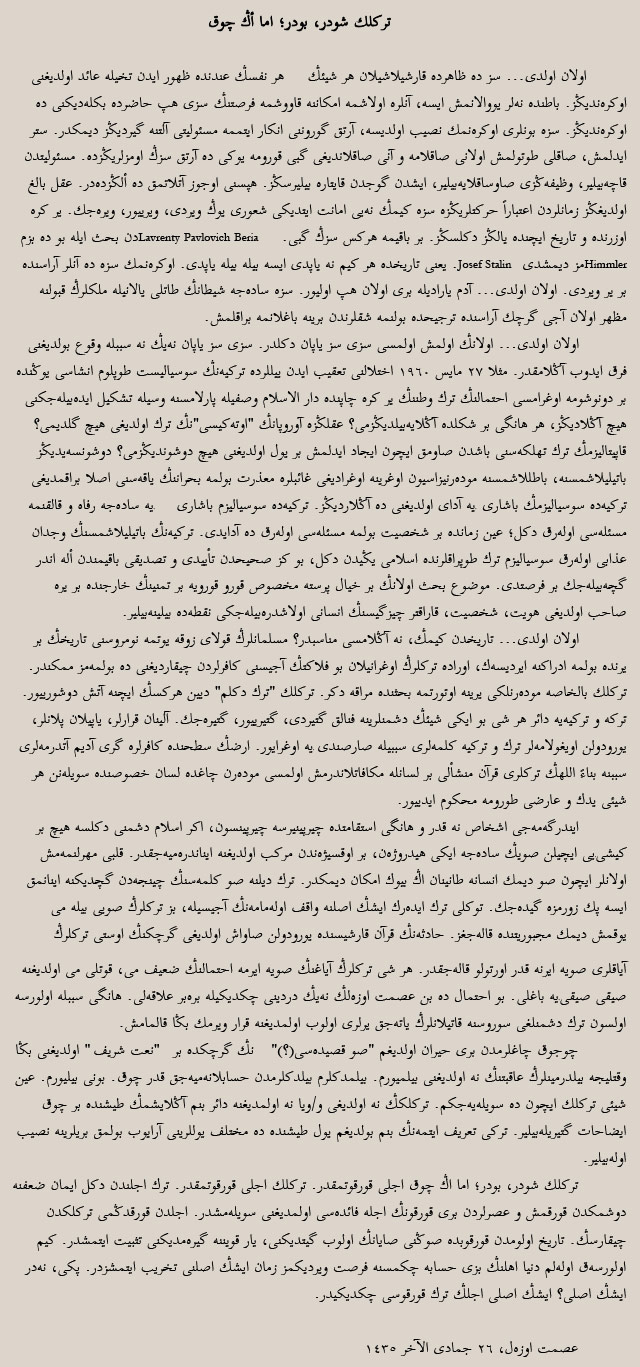 تركلك شودر، بودر؛ اما أڭ چوق
اولان اولدی... سز ده ظاهرده قارشیلاشیلان هر شیئڭ هر نفسڭ عندنده ظهور ایدن تخیله عائد اولدیغنی
اوكره‌ندیڭز. باطنده نه‌لر یووالانمش ایسه، آنلره اولاشمه امكاننه قاووشمه فرصتنڭ سزی هپ حاضرده بكله‌دیكنی ده
اوكره‌ندیڭز. سزه بونلری اوكره‌نمك نصیب اولدیسه، آرتق گوروننی انكار ایتممه مسئولیتی آلتنه گیردیڭز دیمكدر. ستر
ایدلمش، صاقلی طوتولمش اولانی صاقلامه و آنی صاقلاندیغی گبی قورومه یوكی ده آرتق سزڭ اومزلریڭزده. مسئولیتدن
قاچه‌بیلیر، وظیفه‌ڭزی صاوساقلایه‌بیلیر، ایشدن گوجدن قایتاره بیلیرسڭز. هپسنی اوجوز آتلاتمق ده ألڭزده‌در. عقل بالغ
اولدیغڭز زمانلردن اعتباراً حركتلریڭزه سزه كیمڭ نه‌یی امانت ایتدیكی شعوری یوڭ ویردی، ویرییور، ویره‌جك. یر كره
اوزرنده و تاریخ ایچنده یالڭز دكلسڭز. بر باقیمه هركس سزڭ گبی. Lavrenty Pavlovich Beriaدن بحث ایله بو ده بزم
Himmlerمز دیمشدی Josef Stalin. یعنی تاریخده هر كیم نه یاپدی ایسه بیله بیله یاپدی. اوكره‌نمك سزه ده آنلر آراسنده
بر یر ویردی. اولان اولدی... آدم یارادیله بری اولان هپ اولیور. سزه ساده‌جه شیطانڭ طاتلی یالانیله ملكلرڭ قبولنه
مظهر اولان آجی گرچك آراسنده ترجیحده بولنمه شقلرندن برینه باغلانمه براقلمش.
اولان اولدی... اولانڭ اولمش اولمسی سزی سز یاپان دكلدر. سزی سز یاپان نه‌یڭ نه سببله وقوع بولدیغنی
فرق ایدوب آڭلامقدر. مثلا ٢٧ مایس ١٩٦٠ اختلالنی تعقیب ایدن ییللرده تركیه‌نڭ سوسیالیست طوپلوم انشاسی یوڭنده
بر دونوشومه اوغرامسی احتمالنڭ ترك وطننڭ یر كره چاپنده دار الاسلام وصفیله پارلامسنه وسیله تشكیل ایده‌بیله‌جكنی
هیچ آڭلادیڭز، هر هانگی بر شكلده آڭلایه‌بیلدیڭزمی؟ عقلڭزه آوروپانڭ "اوته‌كیسی"نڭ ترك اولدیغی هیچ گلدیمی؟
قاپیتالیزمڭ ترك تهلكه‌سنی باشدن صاومق ایچون ایجاد ایدلمش بر یول اولدیغنی هیچ دوشوندیڭزمی؟ دوشونسه‌یدیڭز
باتیلیلاشمسنه، باطللاشمسنه موده‌رنیزاسیون اوغرینه اوغرادیغی غائبلره معذرت بولمه بحراننڭ یاقه‌سنی اصلا براقمدیغی
تركیه‌ده سوسیالیزمڭ باشاری یه آدای اولدیغنی ده آڭلاردیڭز. تركیه‌ده سوسیالیزم باشاری یه ساده‌جه رفاه و قالقنمه
مسئله‌سی اوله‌رق دكل؛ عین زمانده بر شخصیت بولمه مسئله‌سی اوله‌رق ده آدایدی. تركیه‌نڭ باتیلیلاشمسنڭ وجدان
عذابی اوله‌رق سوسیالیزم ترك طوپراقلرنده اسلامی یڭیدن دكل، بو كز صحیحدن تأییدی و تصدیقی باقیمندن أله اندر
گچه‌بیله‌جك بر فرصتدی. موضوع بحث اولانڭ بر خیال پرسته مخصوص قورو قورویه بر تمنینڭ خارجنده بر یره
صاحب اولدیغی هویت، شخصیت، قاراقتر چیزگیسنڭ انسانی اولاشدره‌بیله‌جكی نقطه‌ده بیلینه‌بیلیر.
اولان اولدی... تاریخدن كیمڭ، نه آڭلامسی مناسبدر؟ مسلمانلرڭ قولای زوقه یوتمه نومروسنی تاریخڭ بر
یرنده بولمه ادراكنه ایردیسه‌ك، اوراده تركلرڭ اوغرانیلان بو فلاكتڭ آجیسنی كافرلردن چیقاردیغنی ده بولمه‌مز ممكندر.
تركلك بالخاصه موده‌رنلكی یرینه اوتورتمه بحثنده مراقه دكر. تركلك "ترك دكلم" دیین هركسڭ ایچنه آتش دوشورییور.
تركه و تركیه‌یه دائر هر شی بو ایكی شیئڭ دشمنلرینه فنالق گتیردی، گتیرییور، گتیره‌جك. آلینان قرارلر، یاپیلان پلانلر،
یورودولن اویغولامه‌لر ترك و تركیه كلمه‌لری سببیله صارصندی یه اوغرایور. ارضڭ سطحنده كافرلره گری آدیم آتدرمه‌لری
سببنه بناءً اللهڭ تركلری قرآن منشألی بر لسانله مكافاتلاندرمش اولمسی موده‌رن چاغده لسان خصوصنده سویله‌نن هر
شیئی یدك و عارضی طورومه محكوم ایدییور.
ایندرگه‌مه‌جی اشخاص نه قدر و هانگی استقامتده چیرپینیرسه چیرپینسون، اكر اسلام دشمنی دكلسه هیچ بر
كیشی‌یی ایچیلن صویڭ ساده‌جه ایكی هیدروژه‌ن، بر اوقسیژه‌ندن مركب اولدیغنه ایناندره‌میه‌جقدر. قلبی مهرلنمه‌مش
اولانلر ایچون صو دیمك انسانه طانینان اڭ بیوك امكان دیمكدر. ترك دیلنه صو كلمه‌سنڭ چینجه‌دن گچدیكنه اینانمق
ایسه پك زورمزه گیده‌جك. توكلی ترك ایده‌رك ایشڭ اصلنه واقف اوله‌مامه‌نڭ آجیسیله، بز تركلرڭ صویی بیله می
یوقمش دیمك مجبوریتنده قاله‌جغز. حادثه‌نڭ قرآن قارشیسنده یورودولن صاواش اولدیغی گرچكنڭ اوستی تركلرڭ
آیاقلری صویه ایرنه قدر اورتولو قاله‌جقدر. هر شی تركلرڭ آیاغنڭ صویه ایرمه احتمالنڭ ضعیف می، قوتلی می اولدیغنه
صیقی صیقی‌یه باغلی. بو احتمال ده بن عصمت اوزه‌لڭ نه‌یڭ دردینی چكدیكیله برە‌بر علاقه‌لی. هانگی سببله اولورسه
اولسون ترك دشمنلغی سوروسنه قاتیلانلرڭ یاته‌جق یرلری اولوب اولمدیغنه قرار ویرمك بڭا قالمامش.
چوجوق چاغلرمدن بری حیران اولدیغم "صو قصیده‌سی(؟)" نڭ گرچكده بر "نعت شریف" اولدیغنی بڭا
وقتلیجه بیلدرمینلرڭ عاقبتنڭ نه اولدیغنی بیلمیورم. بیلمدكلرم بیلدكلرمدن حسابلانه‌میه‌جق قدر چوق. بونی بیلیورم. عین
شیئی تركلك ایچون ده سویله‌یه‌جكم. تركلكڭ نه اولدیغی و/ویا نه اولمدیغنه دائر بنم آڭلایشمڭ طیشنده بر چوق
ایضاحات گتیریله‌بیلیر. تركی تعریف ایتمه‌نڭ بنم بولدیغم یول طیشنده ده مختلف یوللرینی آرایوب بولمق بریلرینه نصیب
اوله‌بیلیر.
تركلك شودر، بودر؛ اما اڭ چوق اجلی قورقوتمقدر. تركلك اجلی قورقوتمقدر. ترك اجلندن دكل ایمان ضعفنه
دوشمكدن قورقمش و عصرلردن بری قورقونڭ اجله فائده‌سی اولمدیغنی سویله‌مشدر. اجلدن قورقدڭمی تركلكدن
چیقارسڭ. تاریخ اولومدن قورقوبده صوڭنی صایانڭ اولوب گیتدیكنی، یار قویننه گیره‌مدیكنی تثبیت ایتمشدر. كیم
اولورسه‌ق اوله‌لم دنیا اهلنڭ بزی حسابه چكمسنه فرصت ویردیكمز زمان ایشڭ اصلنی تخریب ایتمشزدر. پكی، نه‌در
ایشڭ اصلی؟ ایشڭ اصلی اجلڭ ترك قورقوسی چكدیكیدر.
عصمت اوزه‌ل، ٢٦ جمادی الآخر ١٤٣٥